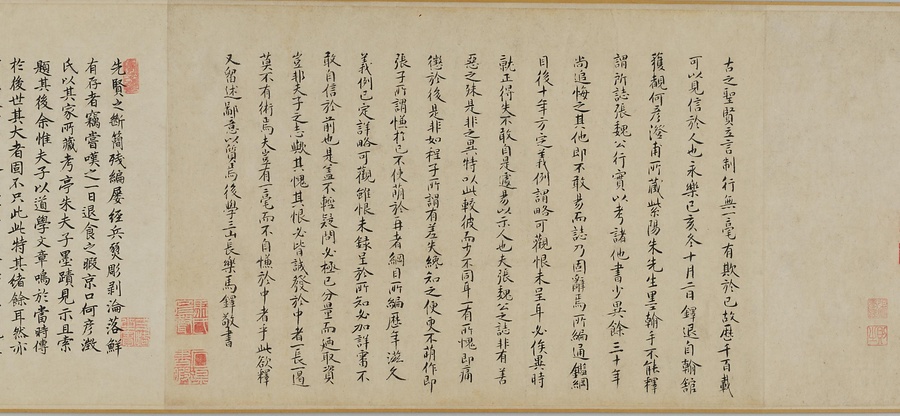 古之聖賢立言制行無一毫有欺於已故歷千百載
可以見信於人也永樂己亥冬十月二日鐸退自翰舘
獲觀何彥澄甫所藏紫陽朱先生墨翰手不能釋
謂所誌張魏公行實以考諸他書少異餘三十年
尚追悔之其他即不敢易而誌乃固辭焉所編通鑑綱
目後十年方定義例謂略可觀恨未呈耳必俟異時
就正得失不敢自是遽易以示人也夫張魏公之誌非有善
惡之殊是非之異特以此較彼而少不同耳一有所愧即痛
懲於後是非如程子所謂有差失纔知之便更不萌作即
張子所謂慊於已不使萌於再者綱目所編歷年滋久
義例已定詳略可觀雖恨未錄呈於所知必加詳審不
敢自信於前也是蓋不輕疑問必極已分量而廼取資
豈非夫子之志歟其愧其恨必皆誠發於中者一長一曷
莫不有術焉夫豈有一毫而不自慊於中者乎此欲釋
又留述鄙意以質焉後學三山長樂馬鐸敬書
先賢之斷簡殘編屢經兵燹彫剥淪落鮮
有存者竊嘗嘆之一日退食之暇京口何彥澂
氏以其家所藏考亭朱夫子墨蹟見示且索
題其後余惟夫子以道學文章鳴於當時傳
於後世其大者固不只此此特其緒餘耳然亦